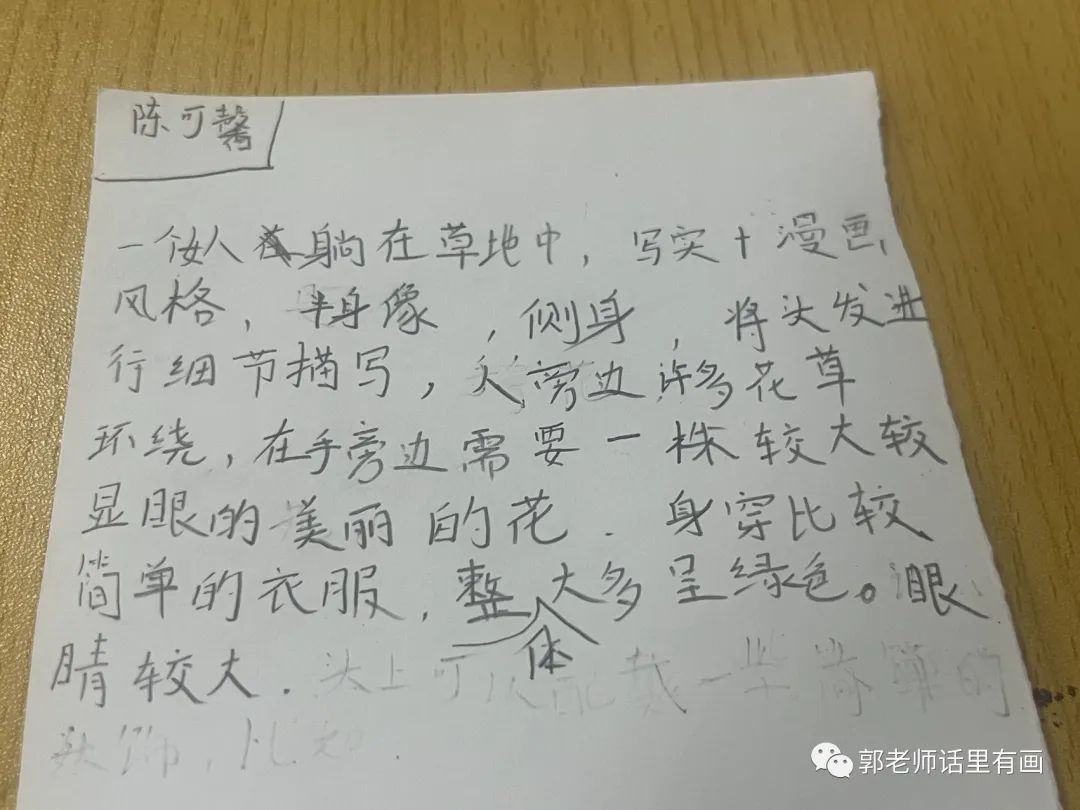 陈可馨
一个女人躺在草地中，写实+漫画
风格，半身像，侧身，将头发进
行细节描写，人旁边许多花草
环绕，在手旁边需要一株较大较
显眼的美丽的花．身穿比较
简单的衣服，整体大多呈绿色。眼
睛较大．头上可以配戴一些简单的
头饰，比如．
郭老师话里有画